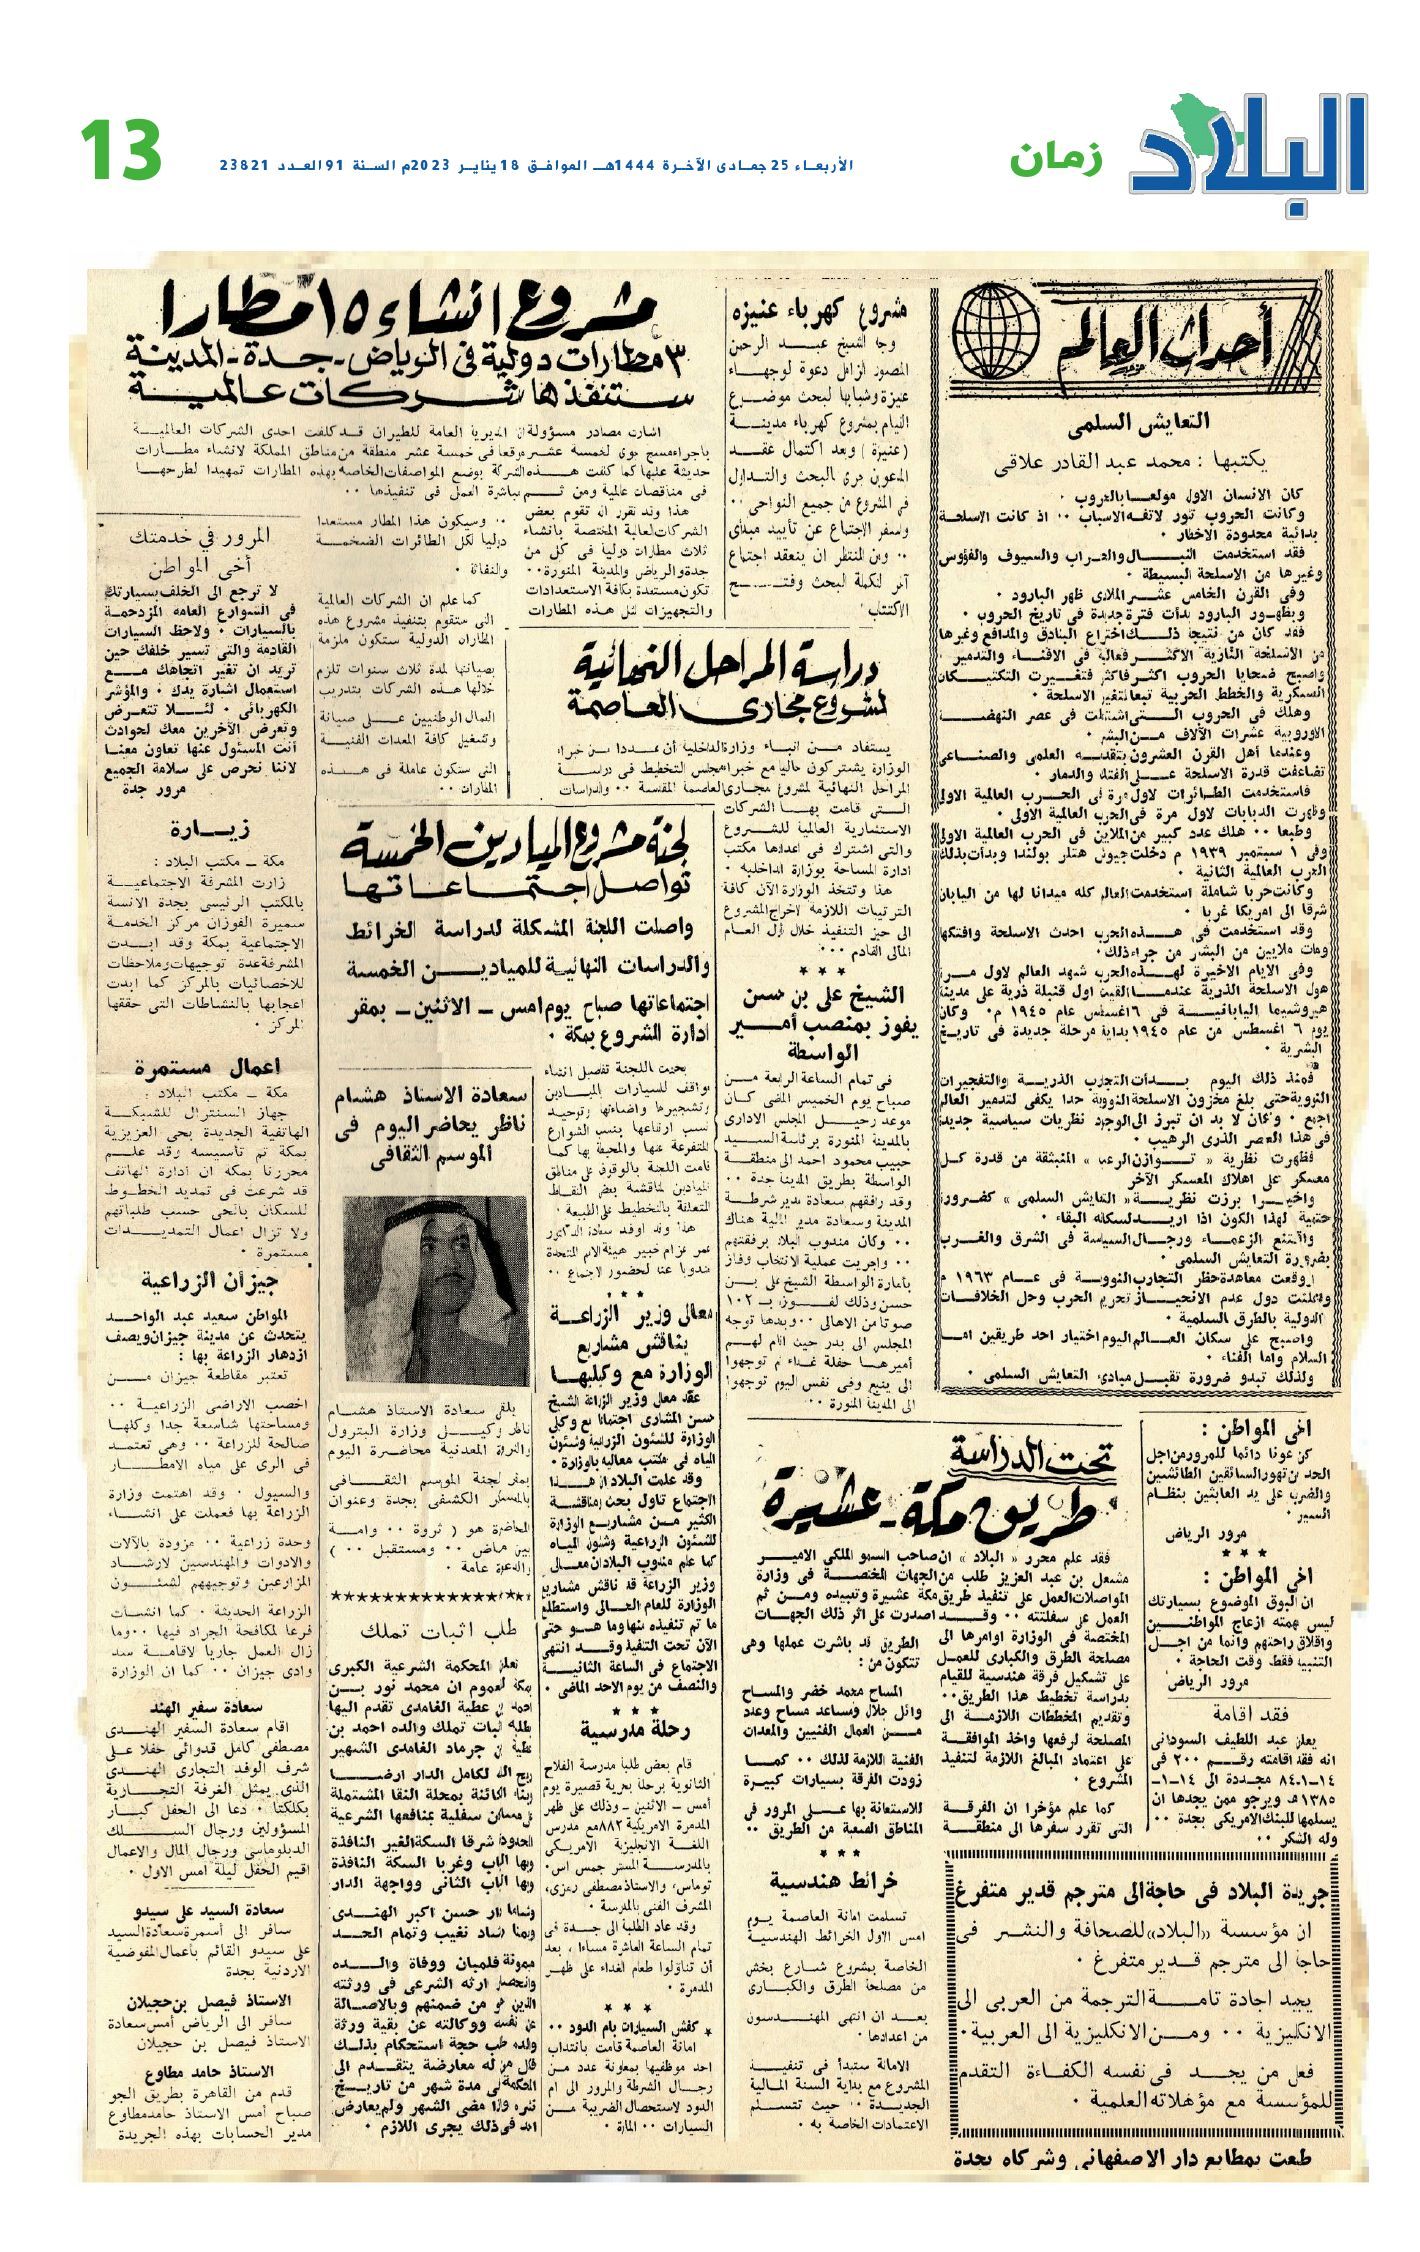 البلاد
زمان
الأربعاء 25 جمادى الآخرة 1444هـ الموافق 18 يناير 2023م السنة 91 العدد 23821
13
أحداث العالم
التعايش السلمى
يكتبها : محمد عبد القادر علاقى
كان الانسان الاول مولعا بالحروب .
وكانت الحروب تثور لاتفه الاسباب .. اذ كانت الاسلحة
بدائية محدودة الاخطار .
فقد استخدمت النبال والحراب والسيوف والفؤوس
وغيرها من الاسلحة البسيطة .
وفى القرن الخامس عشر الملادى ظهر البارود .
وبظهور البارود بدأت فترة جديدة فى تاريخ الحروب .
فقد كان من نتيجة ذلك اختراع البنادق والمدافع وغيرها
من الاسلحة النارية الاكثر فعالية فى الافناء والتدمير .
واصبح ضحايا الحروب اكثر فاكثر فتغيرت التكتيكات
العسكرية والخطط الحربية تبعا لتغير الاسلحة .
وهلك فى الحروب التى اشتعلت فى عصر النهضة
الاوروبية عشرات الآلاف من البشر .
وعندما أهل القرن العشرون بتقدمه العلمى والصناعى
تضاعفت قدرة الاسلحة على الفتك والدمار .
فاستخدمت الطائرات لاول مرة فى الحرب العالمية الاولى
وظهرت الدبابات لاول مرة فى الحرب العالمية الاولى .
وطبعا .. هلك عدد كبير من الملايين فى الحرب العالمية الاولى
وفى ١ سبتمبر ١٩٣٩ م دخلت جيوش هتلر بولندا وبدأت بذلك
الحرب العالمية الثانية .
وكانت حربا شاملة استخدمت العالم كله ميدانا لها من اليابان
شرقا الى امريكا غربا .
وقد استخدمت فى هذه الحرب احدث الاسلحة وافتكها
ومات ملايين من البشر من جراء ذلك .
وفى الايام الاخيرة لهذه الحرب شهد العالم لاول مرة
هول الاسلحة الذرية عندما القيت اول قنبلة ذرية على مدينة
هيروشيما اليابانية فى ٦ اغسطس عام ١٩٤٥ م . وكان
يوم ٦ اغسطس من عام ١٩٤٥ بداية مرحلة جديدة فى تاريخ
البشرية .
فمنذ ذلك اليوم بدأت التجارب الذرية والتفجيرات
النووية حتى بلغ مخزون الاسلحة النووية حدا يكفى لتدمير العالم
اجمع . وكان لا بد ان تبرز الى الوجود نظريات سياسية جديدة
فى هذا العصر الذرى الرهيب .
فظهرت نظرية « توازن الرعب » المنبثقة من قدرة كل
معسكر على اهلاك المعسكر الآخر
واخيرا برزت نظرية « التعايش السلمى » كضرورة
حتمية لهذا الكون اذا اريد لسكانه البقاء .
واقتنع الزعماء ورجال السياسة فى الشرق والغرب
بضرورة التعايش السلمى .
ووقعت معاهدة حظر التجارب النووية فى عام ١٩٦٣ م
واعلنت دول عدم الانحياز تحريم الحرب وحل الخلافات
الدولية بالطرق السلمية .
واصبح على سكان العالم اليوم اختيار احد طريقين اما
السلام واما الفناء .
ولذلك تبدو ضرورة تقبل مبادىء التعايش السلمى .
اخى المواطن :
كن عونا دائما للمرور من اجل
الحد من تهور السائقين الطائشين
والضرب على يد العابثين بنظام
السير .
مرور الرياض
* * *
اخى المواطن :
ان البوق الموضوع بسيارتك
ليس مهمته ازعاج المواطنين
واقلاق راحتهم وانما من اجل
التنبيه فقط وقت الحاجة .
مرور الرياض
فقد اقامة
يعلن عبد اللطيف السودانى
انه فقد اقامته رقم ٢٠٠ فى
١٤-١-٨٤ مجددة الى ١٤-١-
١٣٨٥ هـ ويرجو ممن يجدها ان
يسلمها للبنك الامريكى بجدة ..
وله الشكر ..
جريدة البلاد فى حاجة الى مترجم قدير متفرغ
ان مؤسسة «البلاد» للصحافة والنشر فى
حاجة الى مترجم قدير متفرغ .
يجيد اجادة تامة الترجمة من العربى الى
الانكليزية .. ومن الانكليزية الى العربية .
فعلى من يجد فى نفسه الكفاءة التقدم
للمؤسسة مع مؤهلاته العلمية .
طبعت بمطابع دار الاصفهانى وشركاه بجدة
مشروع كهرباء عنيزه
وجه الشيخ عبد الرحمن
المنصور الزامل دعوة لوجهاء
عنيزة وشبابها لبحث موضوع
القيام بمشروع كهرباء مدينة
( عنيزة ) وبعد اكتمال عقد
المدعوين جرى البحث والتداول
فى المشروع من جميع النواحى ..
واسفر الاجتماع عن تأييد مبدئى
.. ومن المنتظر ان ينعقد اجتماع
آخر لتكملة البحث وفتح
الاكتتاب
مشروع انشاء ١٥ مطارا
٣ مطارات دولية فى الرياض - جدة - المدينة
ستنفذها شركات عالمية
اشارت مصادر مسؤولة ان المديرية العامة للطيران قد كلفت احدى الشركات العالمية
باجراء مسح جوى لخمسة عشر موقعا فى خمسة عشر منطقة من مناطق المملكة لانشاء مطارات
حديثة عليها كما كلفت هذه الشركة بوضع المواصفات الخاصة بهذه المطارات تمهيدا لطرحها
فى مناقصات عالمية ومن ثم مباشرة العمل فى تنفيذها ..
هذا وقد تقرر ان تقوم بعض
الشركات العالمية المختصة بانشاء
ثلاث مطارات دولية فى كل من
جدة والرياض والمدينة المنورة ..
تكون مستعدة بكافة الاستعدادات
والتجهيزات لمثل هذه المطارات
.. وسيكون هذا المطار مستعدا
دوليا لكل الطائرات الضخمة
والنفاثة .
كما علم ان الشركات العالمية
التى ستقوم بتنفيذ مشروع هذه
المطارات الدولية ستكون ملزمة
بصيانتها لمدة ثلاث سنوات تلزم
خلالها هذه الشركات بتدريب
العمال الوطنيين على صيانة
وتشغيل كافة المعدات الفنية
التى ستكون عاملة فى هذه
المطارات ..
دراسة المراحل النهائية
لمشروع مجارى العاصمة
يستفاد من انباء وزارة الداخلية أن عددا من خبراء
الوزارة يشتركون حاليا مع خبراء مجلس التخطيط فى دراسة
المراحل النهائية لمشروع مجارى العاصمة المقدسة .. والدراسات
التى قامت بها الشركات
الاستشارية العالمية للمشروع
والتى اشترك فى اعدادها مكتب
ادارة المساحة بوزارة الداخلية .
هذا وتتخذ الوزارة الآن كافة
الترتيبات اللازمة لاخراج المشروع
الى حيز التنفيذ خلال اول العام
المالى القادم ...
* * *
الشيخ على بن حسن
يفوز بمنصب أمير
الواسطة
فى تمام الساعة الرابعة من
صباح يوم الخميس الماضى كان
موعد رحيل المجلس الادارى
بالمدينة المنورة برئاسة السيد
حبيب محمود احمد الى منطقة
الواسطة بطريق المدينة جدة ..
وقد رافقهم سعادة مدير شرطة
المدينة وسعادة مدير المالية هناك
.. وكان مندوب البلاد برفقتهم
.. واجريت عملية الانتخاب وفاز
بأمارة الواسطة الشيخ على بن
حسن وذلك لفوزه بـ ١٠٢
صوتا من الاهالى .. وبعدها توجه
المجلس الى بدر حيث اقام لهم
أميرها حفلة غداء ثم توجهوا
الى ينبع وفى نفس اليوم توجهوا
الى المدينة المنورة ..
لجنة مشروع الميادين الخمسة
تواصل اجتماعاتها
واصلت اللجنة المشكلة لدراسة الخرائط
والدراسات النهائية للميادين الخمسة
اجتماعاتها صباح يوم امس - الاثنين - بمقر
ادارة المشروع بمكة .
بحثت اللجنة تفصيل انشاء
مواقف للسيارات بالميادين
وتشجيرها واضاءتها وتوحيد
نسب ارتفاعها بنسب الشوارع
المتفرعة عنها والمحيطة بها كما
قامت اللجنة بالوقوف على مناطق
الميادين لمناقشة بعض النقاط
المتعلقة بالتخطيط على الطبيعة .
هذا وقد اوفد سعادة الدكتور
عمر عزام خبير هيئة الامم المتحدة
مندوبا عنه لحضور الاجتماع ..
* * *
معالى وزير الزراعة
يناقش مشاريع
الوزارة مع وكيليها
عقد معالى وزير الزراعة الشيخ
حسن المشارى اجتماعا مع وكيلى
الوزارة للشئون الزراعية وشئون
المياه فى مكتب معاليه بالوزارة .
وقد علمت البلاد ان هذا
الاجتماع تناول بحث ومناقشة
الكثير من مشاريع الوزارة
للشئون الزراعية وشئون المياه
كما علم مندوب البلاد ان معالى
وزير الزراعة قد ناقش مشاريع
الوزارة للعام الحالى واستطلع
ما تم تنفيذه منها وما هو حتى
الآن تحت التنفيذ وقد انتهى
الاجتماع فى الساعة الثانية
والنصف من يوم الاحد الماضى .
* * *
رحلة مدرسية
قام بعض طلبة مدرسة الفلاح
الثانوية برحلة بحرية قصيرة يوم
أمس - الاثنين - وذلك على ظهر
المدمرة الامريكية ٨٨٢ مع مدرس
اللغة الانجليزية الامريكى
بالمدرسة المستر جمس اس.
توماس، والاستاذ مصطفى رمزى،
المشرف الفنى بالمدرسة .
وقد عاد الطلبة الى جدة فى
تمام الساعة العاشرة مساءا ، بعد
أن تناولوا طعام الغداء على ظهر
المدمرة .
* * *
* كفتش السيارات بام الدود ..
امانة العاصمة قامت بانتداب
احد موظفيها بمعونة عدد من
رجال الشرطة والمرور الى ام
الدود لاستحصال الضريبة من
السيارات .. المارة .
سعادة الاستاذ هشام
ناظر يحاضر اليوم فى
الموسم الثقافى
يلقى سعادة الاستاذ هشام
ناظر وكيل وزارة البترول
والثروة المعدنية محاضرة اليوم
بمقر لجنة الموسم الثقافى
بالمعسكر الكشفى بجدة وعنوان
المحاضرة هو ( ثروة .. وامة
بين ماض .. ومستقبل .. )
والدعوة عامة .
طلب اثبات تملك
تعلن المحكمة الشرعية الكبرى
بمكة للعموم ان محمد نور بن
احمد بن عطية الغامدى تقدم اليها
بطلبه اثبات تملك والده احمد بن
عطية بن جرماد الغامدى الشهير
لكامل الدار ارضا
وبناء الكائنة بمحلة النقا المشتملة
على مساكن سفلية بمنافعها الشرعية
المحدودة شرقا السكة الغير النافذة
وبها الباب وغربا السكة النافذة
وبها الباب الثانى وواجهة الدار
وشاما دار حسن اكبر الهندى
ويمنا نقيب وتمام الحد
ووفاة والده
وانحصار ارثه الشرعى فى ورثته
الذين هو من ضمنهم وبالاصالة
عن نفسه ووكالته عن بقية ورثة
والده طلب حجة استحكام بذلك
فكل من له معارضة يتقدم الى
المحكمة فى مدة شهر من تاريخ
نشره واذا مضى الشهر ولم يعارض
احد فى ذلك يجرى اللازم .
المرور في خدمتك
أخى المواطن
لا ترجع الى الخلف بسيارتك
فى الشوارع العامة المزدحمة
بالسيارات . ولاحظ السيارات
القادمة والتى تسير خلفك حين
تريد ان تغير اتجاهك مع
استعمال اشارة يدك . والمؤشر
الكهربائى . لئلا تتعرض
وتعرض الآخرين معك لحوادث
أنت المسئول عنها تعاون معنا
لاننا نحرص على سلامة الجميع
مرور جدة
زيارة
مكة - مكتب البلاد :
زارت المشرفة الاجتماعية
بالمكتب الرئيسى بجدة الانسة
سميرة الفوزان مركز الخدمة
الاجتماعية بمكة وقد ابدت
المشرفة عدة توجيهات وملاحظات
للاخصائيات بالمركز كما ابدت
اعجابها بالنشاطات التى حققها
المركز .
اعمال مستمرة
مكة - مكتب البلاد :
جهاز السنترال للشبكة
الهاتفية الجديدة بحى العزيزية
بمكة تم تأسيسه وقد علم
محررنا بمكة ان ادارة الهاتف
قد شرعت فى تمديد الخطوط
للسكان بالحى حسب طلباتهم
ولا تزال اعمال التمديدات
مستمرة .
جيزان الزراعية
المواطن سعيد عبد الواحد
يتحدث عن مدينة جيزان ويصف
ازدهار الزراعة بها :
تعتبر مقاطعة جيزان من
اخصب الاراضى الزراعية ..
ومساحتها شاسعة جدا وكلها
صالحة للزراعة .. وهى تعتمد
فى الرى على مياه الامطار
والسيول . وقد اهتمت وزارة
الزراعة بها فعملت على انشاء
وحدة زراعية .. مزودة بالآلات
والادوات والمهندسين لارشاد
المزارعين وتوجيههم لشئون
الزراعة الحديثة . كما انشأت
فرعا لمكافحة الجراد فيها .. وما
زال العمل جاريا لاقامة سد
وادى جيزان .. كما ان الوزارة
سعادة سفير الهند
اقام سعادة السفير الهندى
مصطفى كامل قدوائى حفلا على
شرف الوفد التجارى الهندى
الذى يمثل الغرفة التجارية
بكلكتا . دعا الى الحفل كبار
المسؤولين ورجال السلك
الدبلوماسى ورجال المال والاعمال
اقيم الحفل ليلة امس الاول .
سعادة السيد على سيدو
سافر الى أسمرة سعادة السيد
على سيدو القائم بأعمال المفوضية
الاردنية بجدة
الاستاذ فيصل بن حجيلان
سافر الى الرياض أمس سعادة
الاستاذ فيصل بن حجيلان
الاستاذ حامد مطاوع
قدم من القاهرة بطريق الجو
صباح أمس الاستاذ حامد مطاوع
مدير الحسابات بهذه الجريدة
تحت الدراسة
طريق مكة - عشيرة
فقد علم محرر « البلاد » ان صاحب السمو الملكى الامير
مشعل بن عبد العزيز طلب من الجهات المختصة فى وزارة
المواصلات العمل على تنفيذ طريق مكة عشيرة وتعبيده ومن ثم
العمل على سفلتته .. وقد اصدرت على اثر ذلك الجهات
المختصة فى الوزارة اوامرها الى
مصلحة الطرق والكبارى للعمل
على تشكيل فرقة هندسية للقيام
بدراسة تخطيط هذا الطريق ..
وتقديم المخططات اللازمة الى
المصلحة لرفعها واخذ الموافقة
على اعتماد المبالغ اللازمة لتنفيذ
المشروع .
كما علم مؤخرا ان الفرقة
التى تقرر سفرها الى منطقة
الطريق قد باشرت عملها وهى
تتكون من :
المساح محمد خضر والمساح
وائل جلال ومساعد مساح وعدد
من العمال الفنيين والمعدات
الفنية اللازمة لذلك .. كما
زودت الفرقة بسيارات كبيرة
للاستعانة بها على المرور فى
المناطق الصعبة من الطريق ..
* * *
خرائط هندسية
تسلمت امانة العاصمة يوم
امس الاول الخرائط الهندسية
الخاصة بمشروع شارع بخش
من مصلحة الطرق والكبارى
بعد ان انتهى المهندسون
من اعدادها .
الامانة ستبدأ فى تنفيذ
المشروع مع بداية السنة المالية
الجديدة .. حيث تتسلم
الاعتمادات الخاصة به .